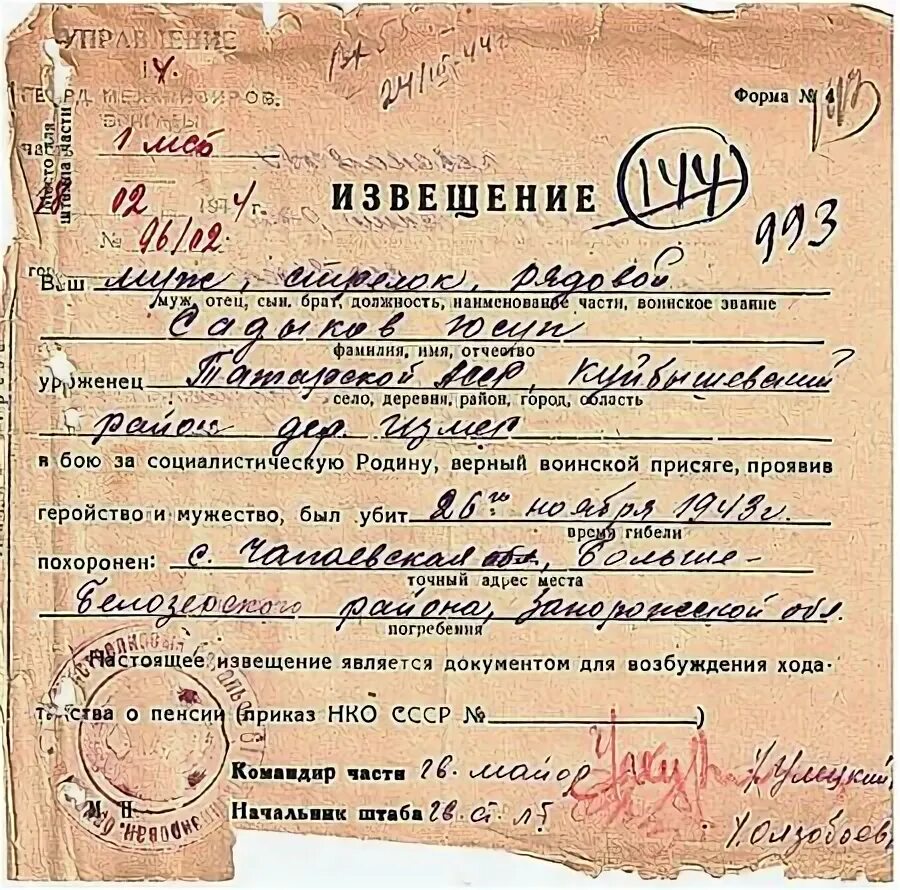 УПРАВЛЕНИЕ
24/III-44г
Форма № 4
МЕХАНИЗИРОВ.
1 мсб
Место для штампа части
02 1944 г.
ИЗВЕЩЕНИЕ
144
№ 96/02.
993
Ваш муж, стрелок, рядовой
муж, отец, сын, брат, должность, наименование части, воинское звание
Садыков Юсуп
фамилия, имя, отчество
уроженец Татарской АССР, Куйбышевский
село, деревня, район, город, область
район дер. Измер
в бою за социалистическую Родину, верный воинской присяге, проявив
геройство и мужество, был убит 26го ноября 1943г.
время гибели
похоронен: с. Чапаевская обл, Больше-
точный адрес места
Белозерского района, Запорожской обл.
погребения
Настоящее извещение является документом для возбуждения хода-
тайства о пенсии (приказ НКО СССР № )
Командир части гв. майор
М. П.
Начальник штаба гв. ст. лт